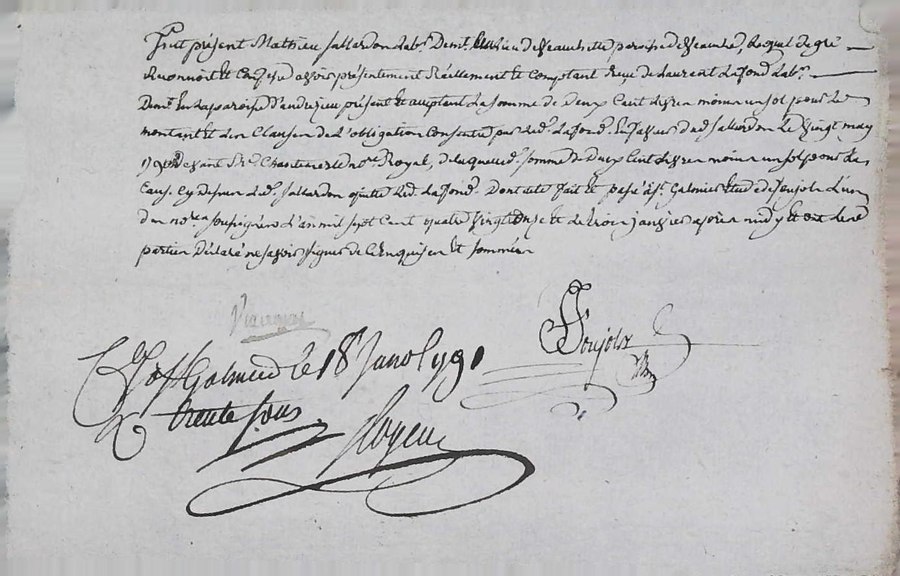 Fut présent Mathieu Sallardon lab.r Demt. au lieu de paroisse de lequel de gré
Reconnoit et Confesse avoir présentement Réellement et Comptant Reçu de Laurent Lafond lab.r
Demt. en la paroisse d'andrezieu présent et acceptant la somme de Deux Cent livres moins un sol pour le
montant et les Clauses de l'obligation Consentie par led. Lafond En faveur dud. Sallardon Le vingt may
devant Me. Chantemerle Nre. Royal, de laquelle somme de deux Cent livres moins un sol pour les
Caus. Cy Dessus led. Sallardon quitte led. Lafond. Dont acte fait et passé à St. Galmier Etude de Soujols l'un
des nores. soussignés l'an mil sept Cent quatre vingt onze et le trois janvier après midy et ont lesd.
parties Déclaré ne savoir signer de ce Enquises et sommées
Soujols
Nre
à St Galmier le 18 Janv. 1791
trente sous